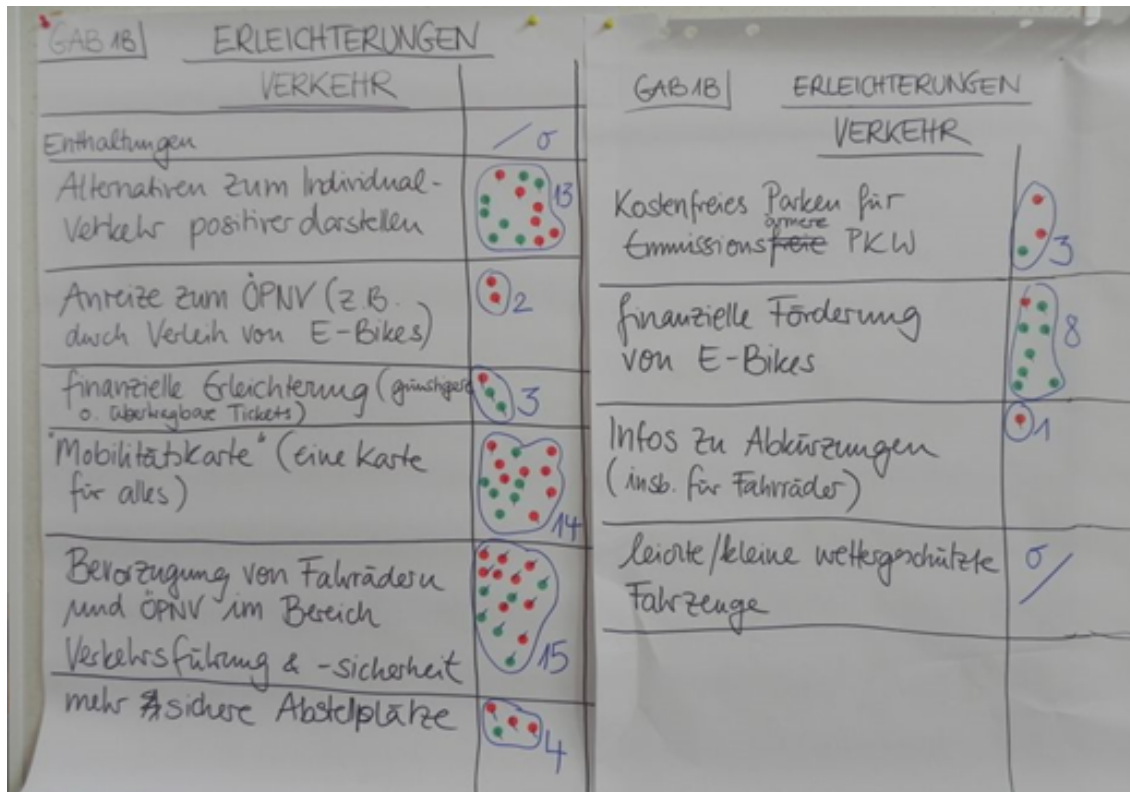 GAB 1B
ERLEICHTERUNGEN
VERKEHR
Enthaltungen / 0
Alternativen zum Individual-
verkehr positiver darstellen
13
Anreize zum ÖPNV (z.B.
durch Verleih von E-Bikes)
2
finanzielle Erleichterung (günstigere
o. übertragbare Tickets)
3
"Mobilitätskarte" (eine Karte
für alles)
14
Bevorzugung von Fahrrädern
und ÖPNV im Bereich
Verkehrsführung & -sicherheit
15
mehr sichere Abstellplätze
4
GAB 1B
ERLEICHTERUNGEN
VERKEHR
Kostenfreies Parken für
ärmere
Emmissionsfreie PKW
3
finanzielle Förderung
von E-Bikes
8
Infos zu Abkürzungen
(insb. für Fahrräder)
1
leichte/kleine wettergeschützte
Fahrzeuge
0 /